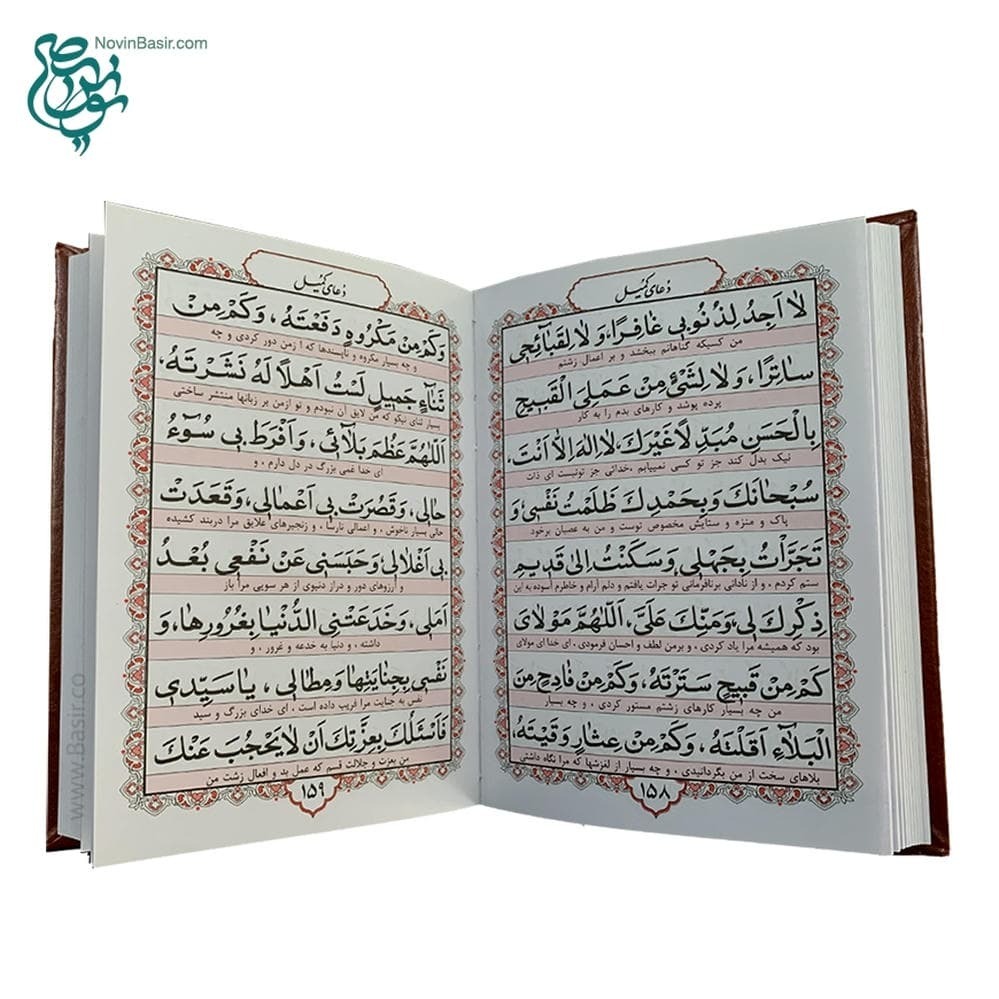 NovinBasir.com
دعای کمیل
لا اَجِدُ لِذُنُوبي غافِرًا، وَ لا لِقَبآئِحي
من کسیکه گناهانم ببخشد و بر اعمال زشتم
ساتِرًا، وَ لا لِشَیْءٍ مِنْ عَمَلِیَ الْقَبیحِ
پرده پوشد و کارهای بدم را به کار
بِالْحَسَنِ مُبَدِّلًا غَیْرَكَ، لا اِلهَ اِلّا اَنْتَ،
نیک بدل کند جز تو کسی نمییابم ،خدائی جز تونیست ای ذات
سُبْحانَكَ وَ بِحَمْدِكَ ظَلَمْتُ نَفْسي، وَ
پاک و منزه و ستایش مخصوص توست و من به عصیان برخود
تَجَرَّأْتُ بِجَهْلي، وَ سَكَنْتُ اِلى قَدیمِ
ستم کردم ، و از نادانی برنافرمانی تو جرات یافتم و دلم آرام و خاطرم آسوده به این
ذِكْرِكَ لي، وَ مَنِّكَ عَلَیَّ، اَللّهُمَّ مَوْلایَ
بود که همیشه مرا یاد کردی ، و برمن لطف و احسان فرمودی ، ای خدا ای مولای
كَمْ مِنْ قَبیحٍ سَتَرْتَهُ، وَ كَمْ مِنْ فادِحٍ مِنَ
من چه بسیار کارهای زشتم مستور کردی ، و چه بسیار
الْبَلآءِ اَقَلْتَهُ، وَ كَمْ مِنْ عِثارٍ وَقَیْتَهُ،
بلاهای سخت از من بگردانیدی ، و چه بسیار از لغزشها که مرا نگاه داشتی
۱۵۸
دعای کمیل
وَ كَمْ مِنْ مَكْرُوهٍ دَفَعْتَهُ، وَ كَمْ مِنْ
و چه بسیار مکروه و ناپسندها که ا زمن دور کردی و چه
ثَنآءٍ جَمیلٍ لَسْتُ اَهْلًا لَهُ نَشَرْتَهُ،
بسیار ثنای نیکو که من لایق آن نبودم و تو ازمن بر زبانها منتشر ساختی
اَللّهُمَّ عَظُمَ بَلآئي، وَ اَفْرَطَ بي سُوٓءُ
ای خدا غمی بزرگ در دل دارم ، و
حالي، وَ قَصُرَتْ بي اَعْمالي، وَ قَعَدَتْ
حالی بسیار ناخوش ، و اعمالی نارسا ، و زنجیرهای علایق مرا دربند کشیده
بي اَغْلالي، وَ حَبَسَني عَنْ نَفْعي بُعْدُ
و آرزوهای دور و دراز دنیوی از هر سویی مرا باز
اَمَلي، وَ خَدَعَتْنِي الدُّنْیا بِغُرُورِها، وَ
داشته ، و دنیا به خدعه و غرور ، و
نَفْسي بِجِنایَتِها وَ مِطالي، یا سَیِّدي
نفس به جنایت مرا فریب داده است ، ای خدای بزرگ و سید
فَاَسْئَلُكَ بِعِزَّتِكَ اَنْ لا یَحْجُبَ عَنْكَ
من بعزت و جلالت قسم که عمل بد و افعال زشت من
۱۵۹
www.Basir.co